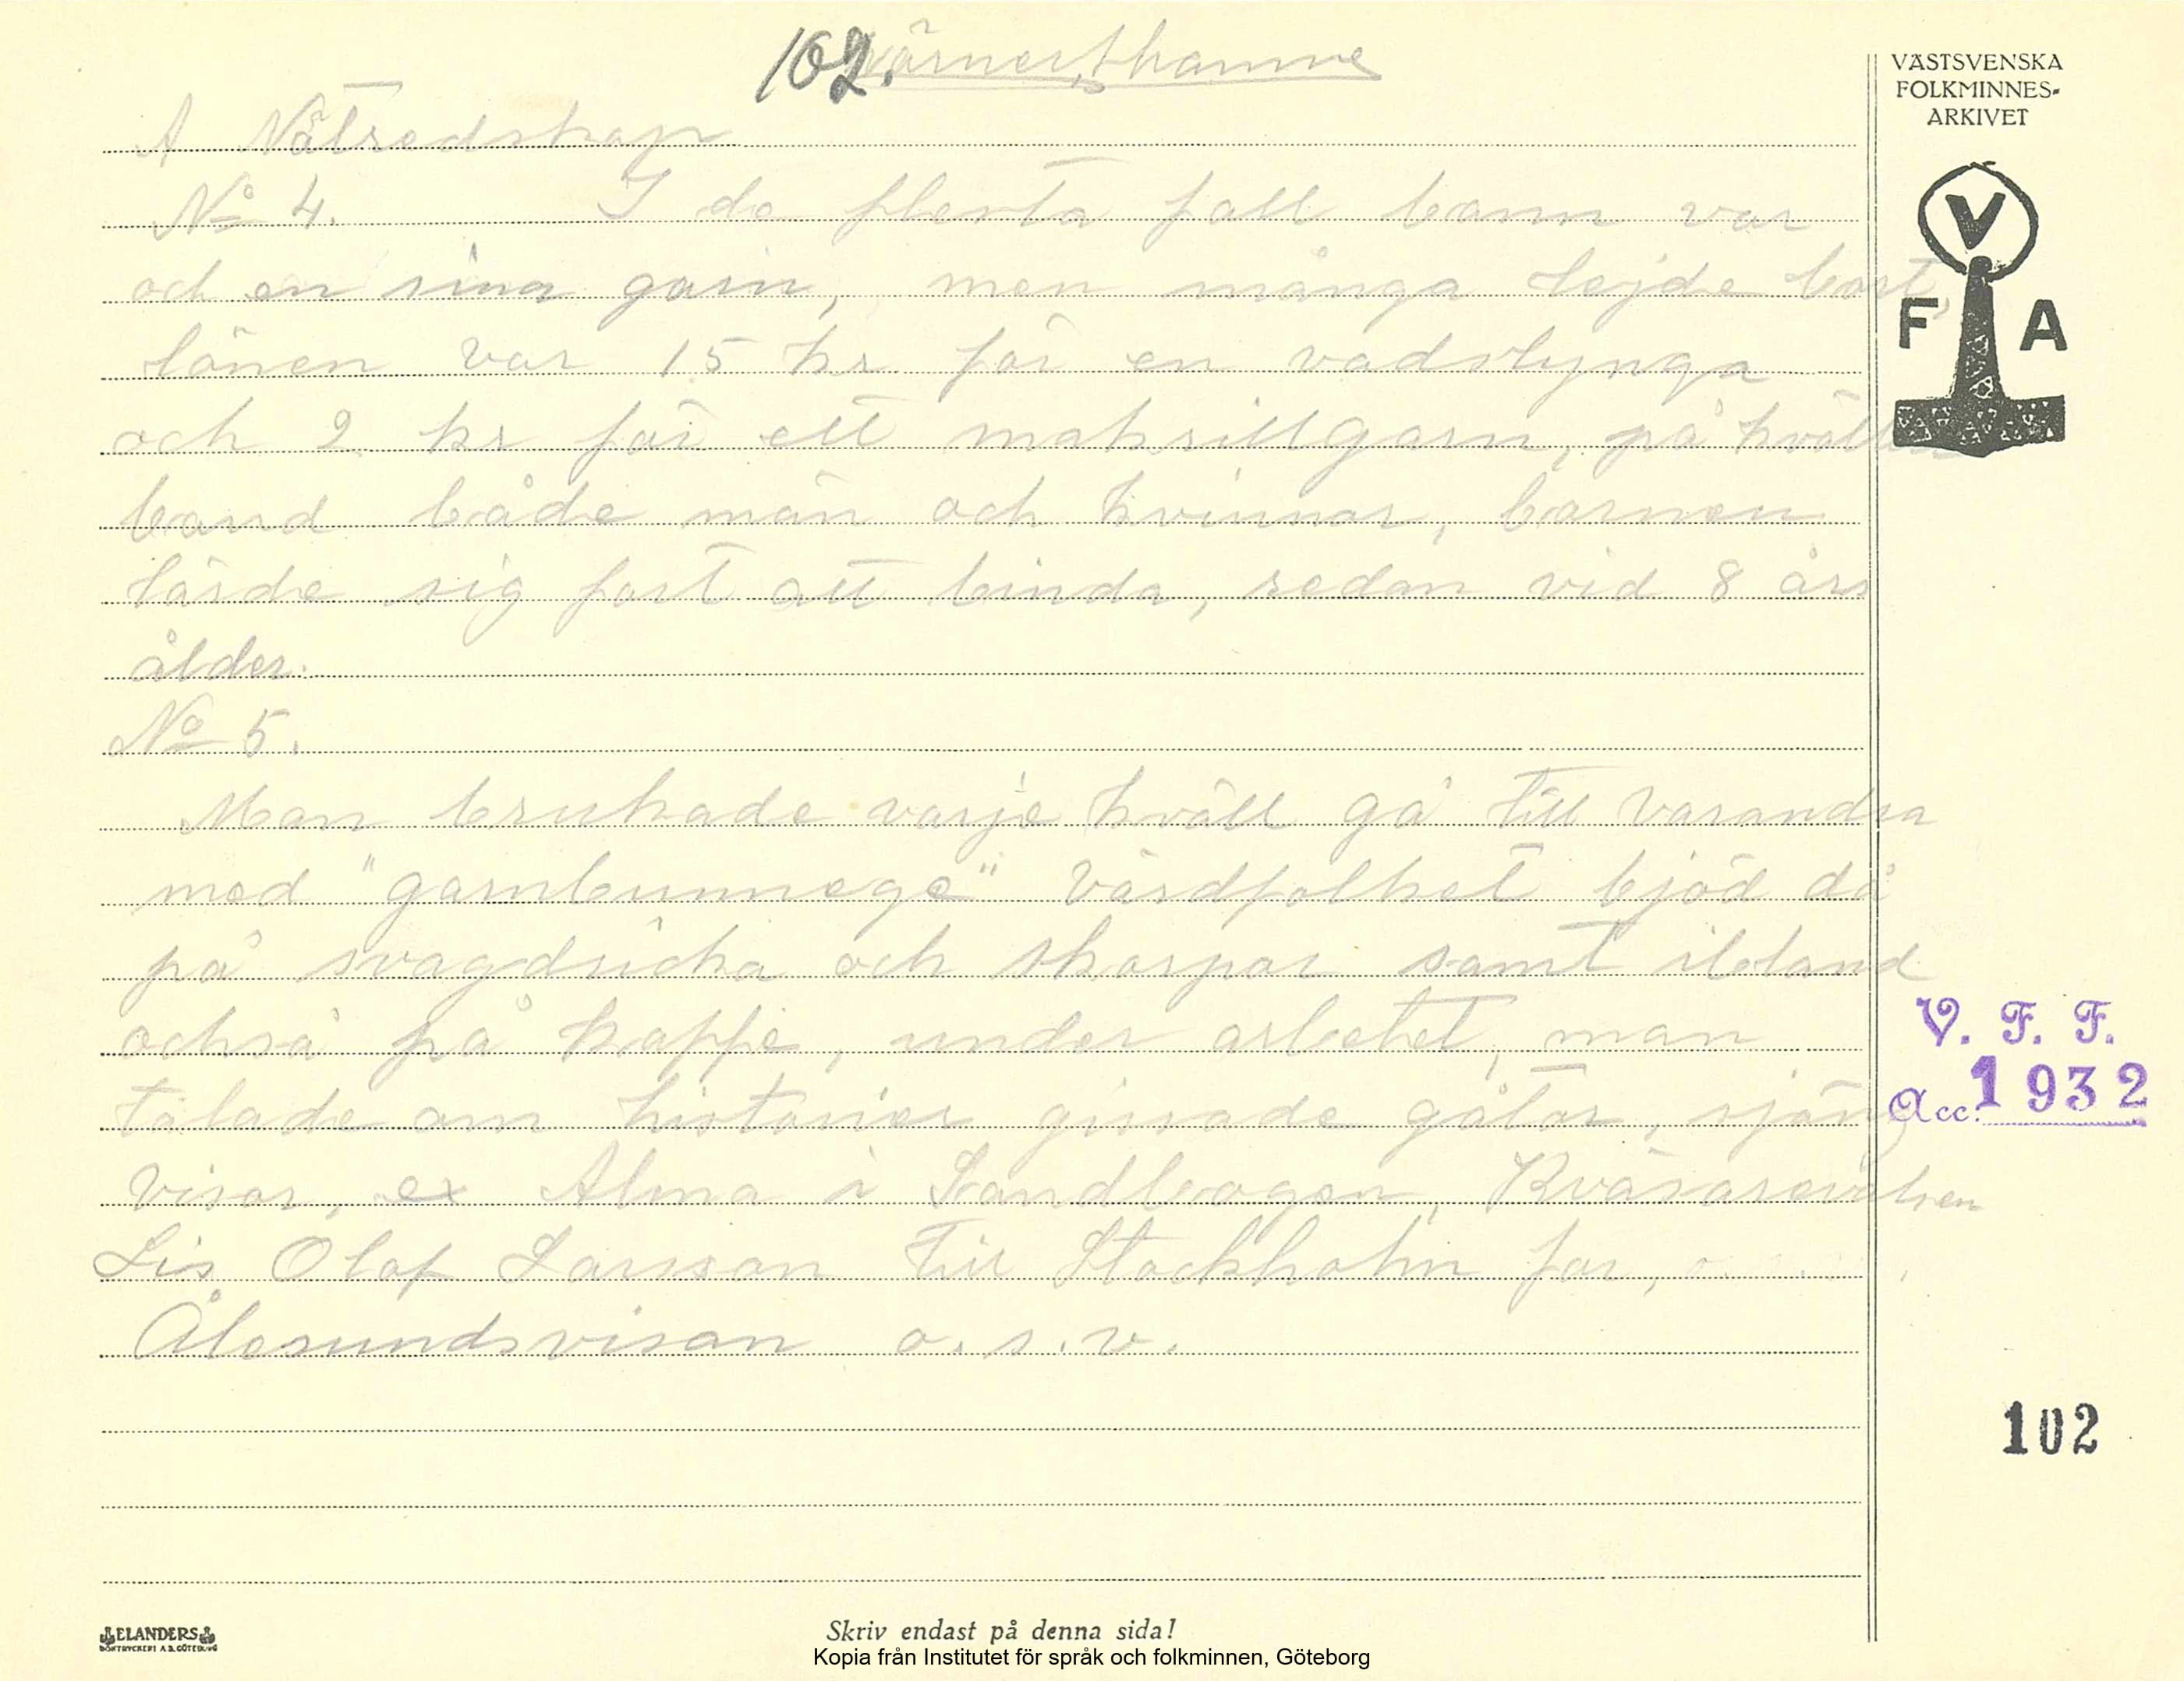 102.
VÄSTSVENSKA
FOLKMINNES-
ARKIVET
A Nätredskap
No 4. I de flesta fall bann var
och en sina garn, men många lejde bort,
lönen var 15 kr för en vadslynga
och 2 kr för ett makrillgarn, på kvällen
band både män och kvinnor, barnen
lärde sig fort att binda, redan vid 8 års
ålder.
No 5.
Man brukade varje kväll gå till varandra
med "garnbunnege" värdfolket bjöd då
på svagdricka och skorpor samt ibland
också på kaffe, under arbetet, man
talade om historier gissade gåtor, sjöng
visor, ex Alma i Sandbogen, Kväsarevalsen
Lis Olof Larsson till Stockholm for,
Ålesundsvisan o.s.v.
V
F A
V. F. F.
Acc. 1932
102
ELANDERS
BOKTRYCKERI A.B. GÖTEBORG
Skriv endast på denna sida!
Kopia från Institutet för språk och folkminnen, Göteborg